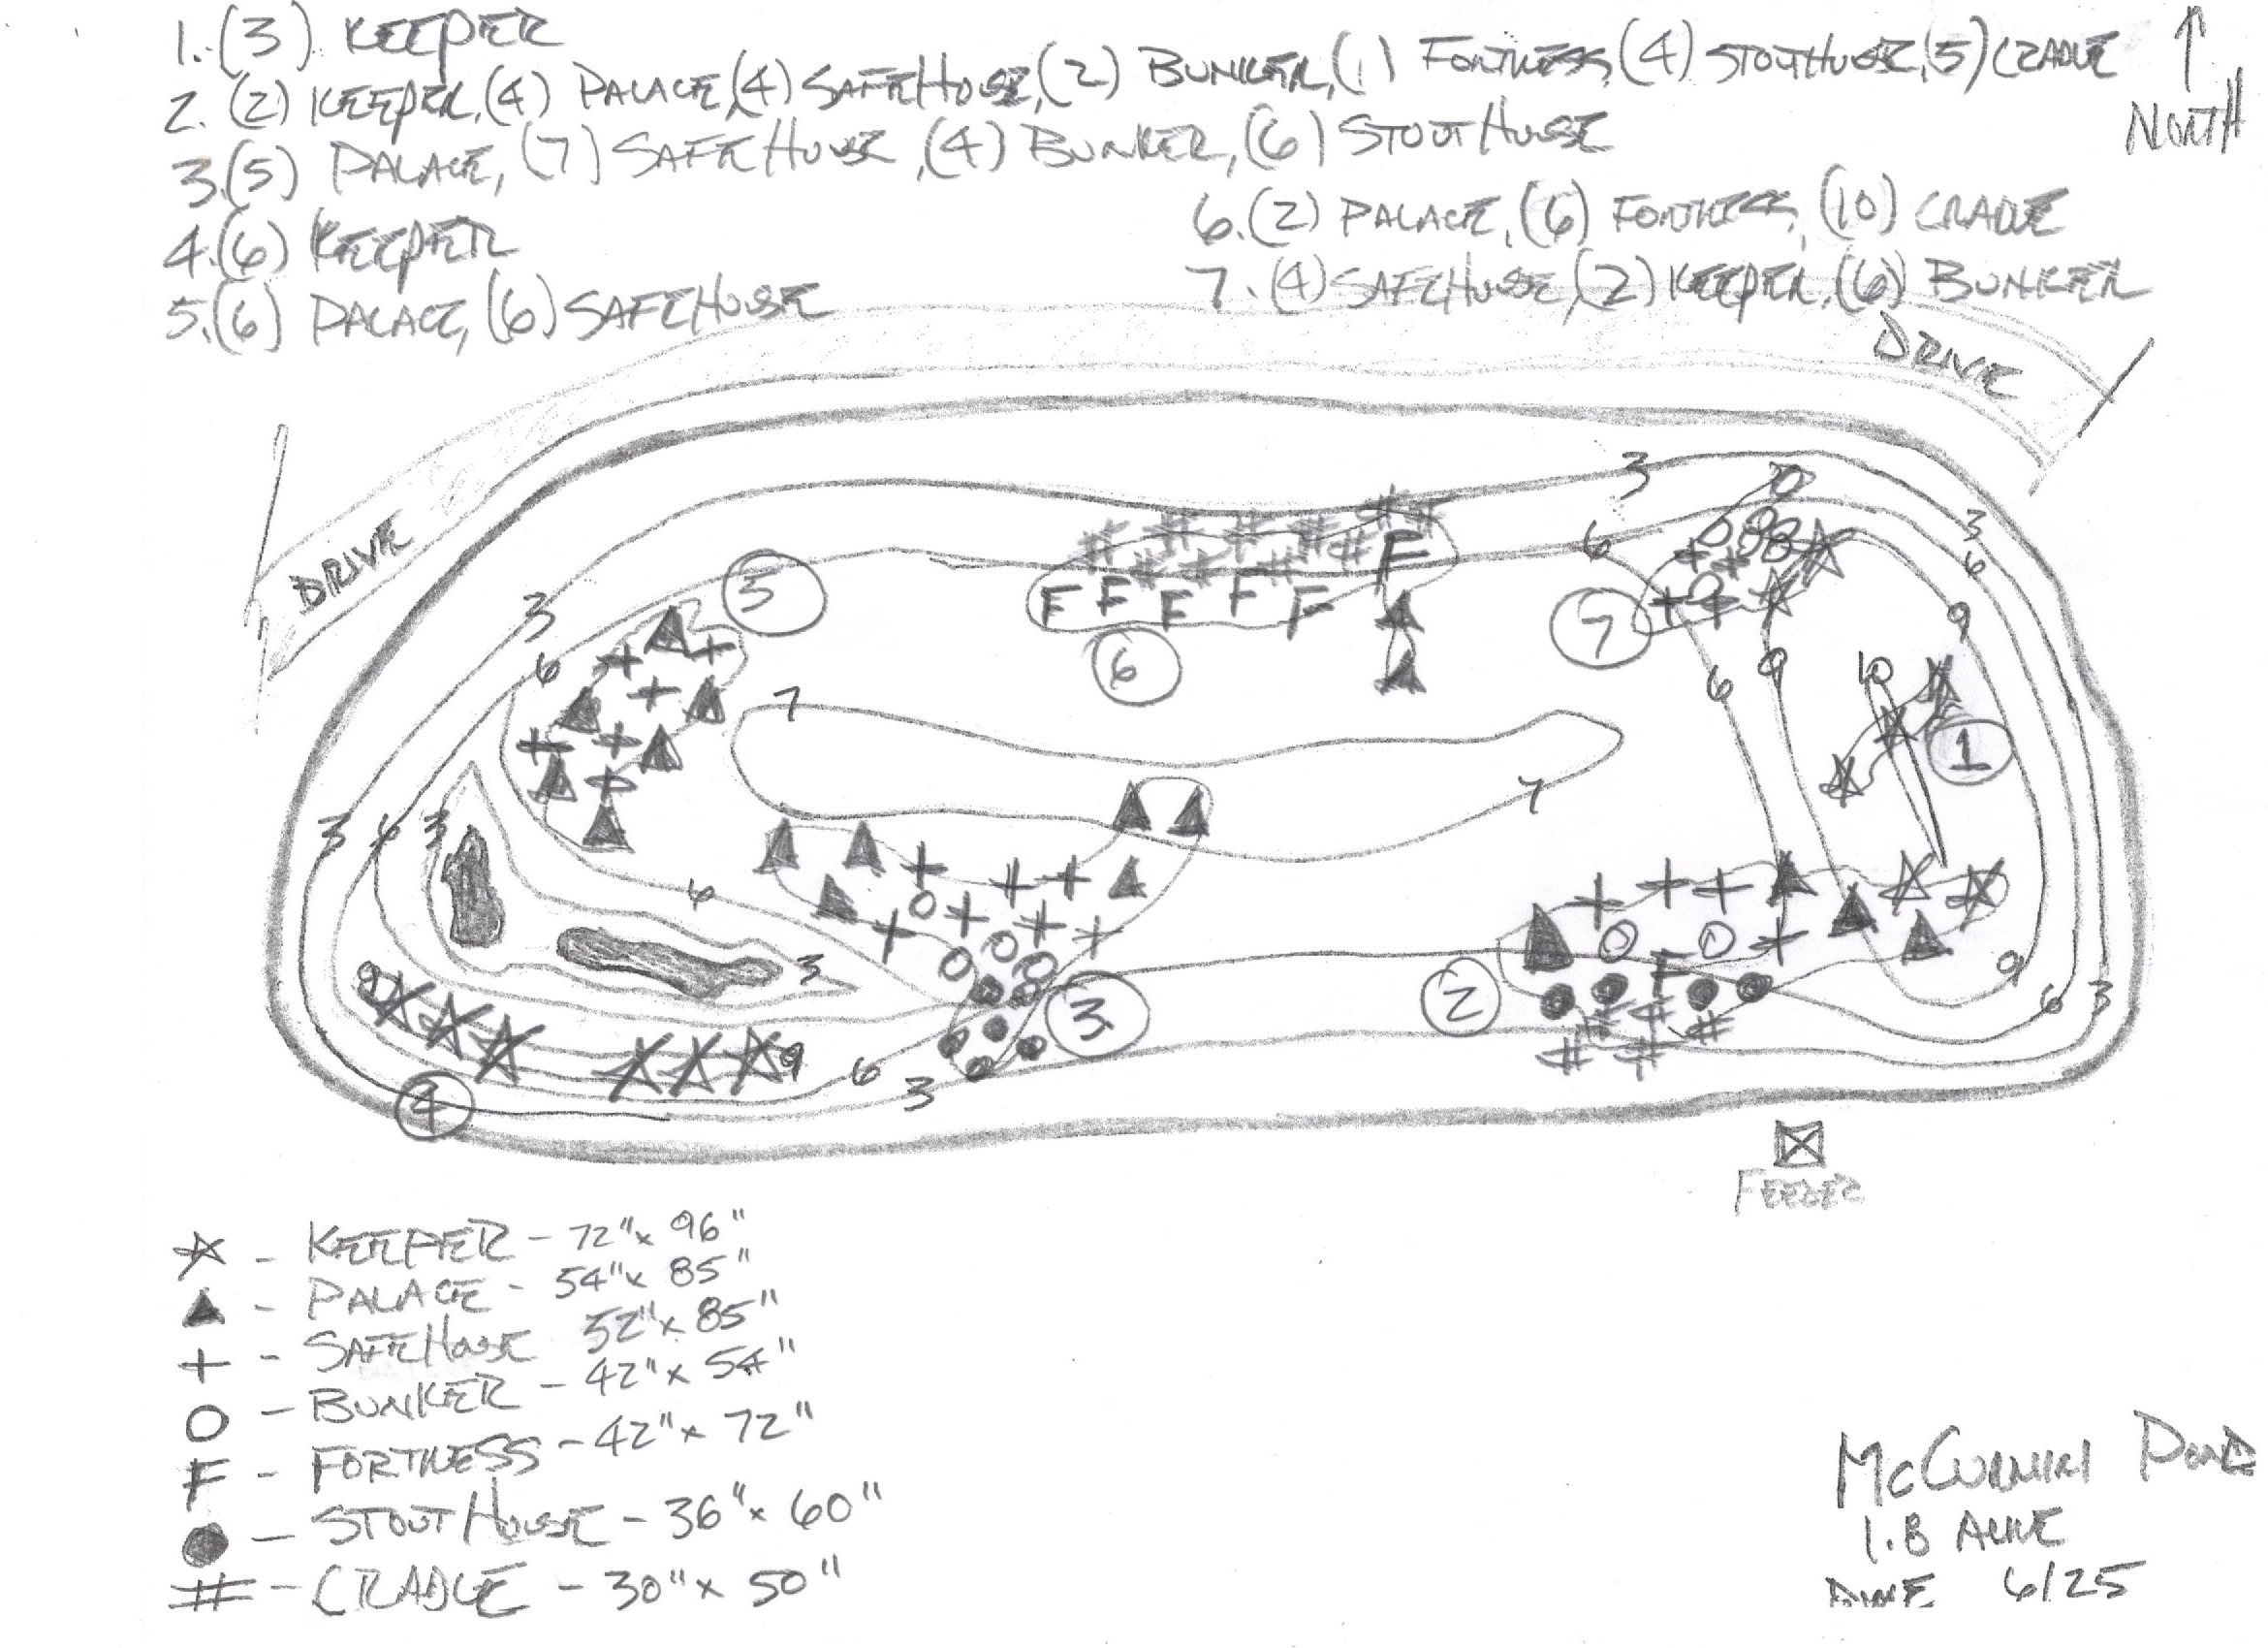 1. (3) KEEPER
2. (2) KEEPER, (4) PALACE, (4) SAFEHOUSE, (2) BUNKER, (1) FORTRESS, (4) STOUTHOUSE, (5) CRADLE
↑
NORTH
3. (5) PALACE, (7) SAFEHOUSE, (4) BUNKER, (6) STOUTHOUSE
4. (6) KEEPER
5. (6) PALACE, (6) SAFEHOUSE
6. (2) PALACE, (6) FORTRESS, (10) CRADLE
7. (4) SAFEHOUSE, (2) KEEPER, (6) BUNKER
DRIVE
DRIVE
3
3
6
6
9
5
3
6
F F F F F F
6
7
6
9
10
1
7
7
3
6
3
6
3
9
2
F
3
9
6
3
9
9
6
3
4
FEEDER
☆ - KEEPER - 72" x 96"
▲ - PALACE - 54" x 85"
+ - SAFEHOUSE 52" x 85"
O - BUNKER - 42" x 54"
F - FORTRESS - 42" x 72"
● - STOUTHOUSE - 36" x 60"
# - CRADLE - 30" x 50"
POND
1.8 ACRE
6/25